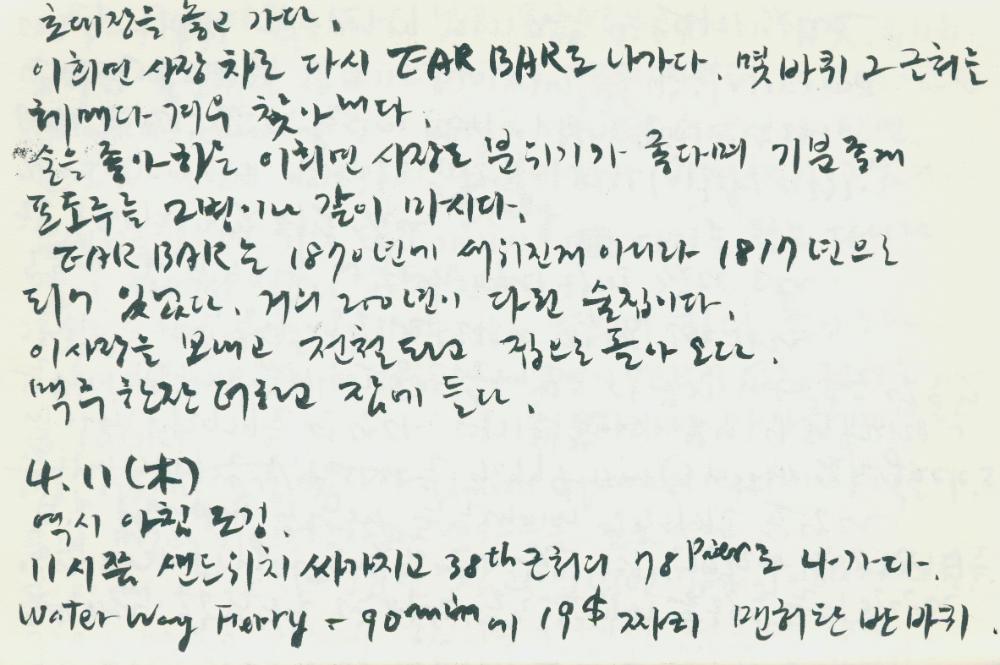 초대장을 놓고 가다
이희면 사장 차로 다시 EAR BAR로 나가다. 몇 바퀴 그 근처를
헤메다 겨우 찾아내다.
술을 좋아하는 이희면 사장도 분위기가 좋다며 기분좋게
포도주를 2병이나 같이 마시다.
EAR BAR는 1870년에 세워진게 아니라 1817년으로
되어 있었다. 거의 200년이 다된 술집이다.
이사장을 보내고 전철타고 집으로 돌아 오다.
맥주 한잔 더하고 잠에 들다.
4.11(木)
역시 아침 조깅.
11시쯤 샌드위치 싸가지고 38th 근처의 78 Pier로 나가다.
Water Way Ferry - 90min에 19$ 짜리 맨허탄 반바퀴.